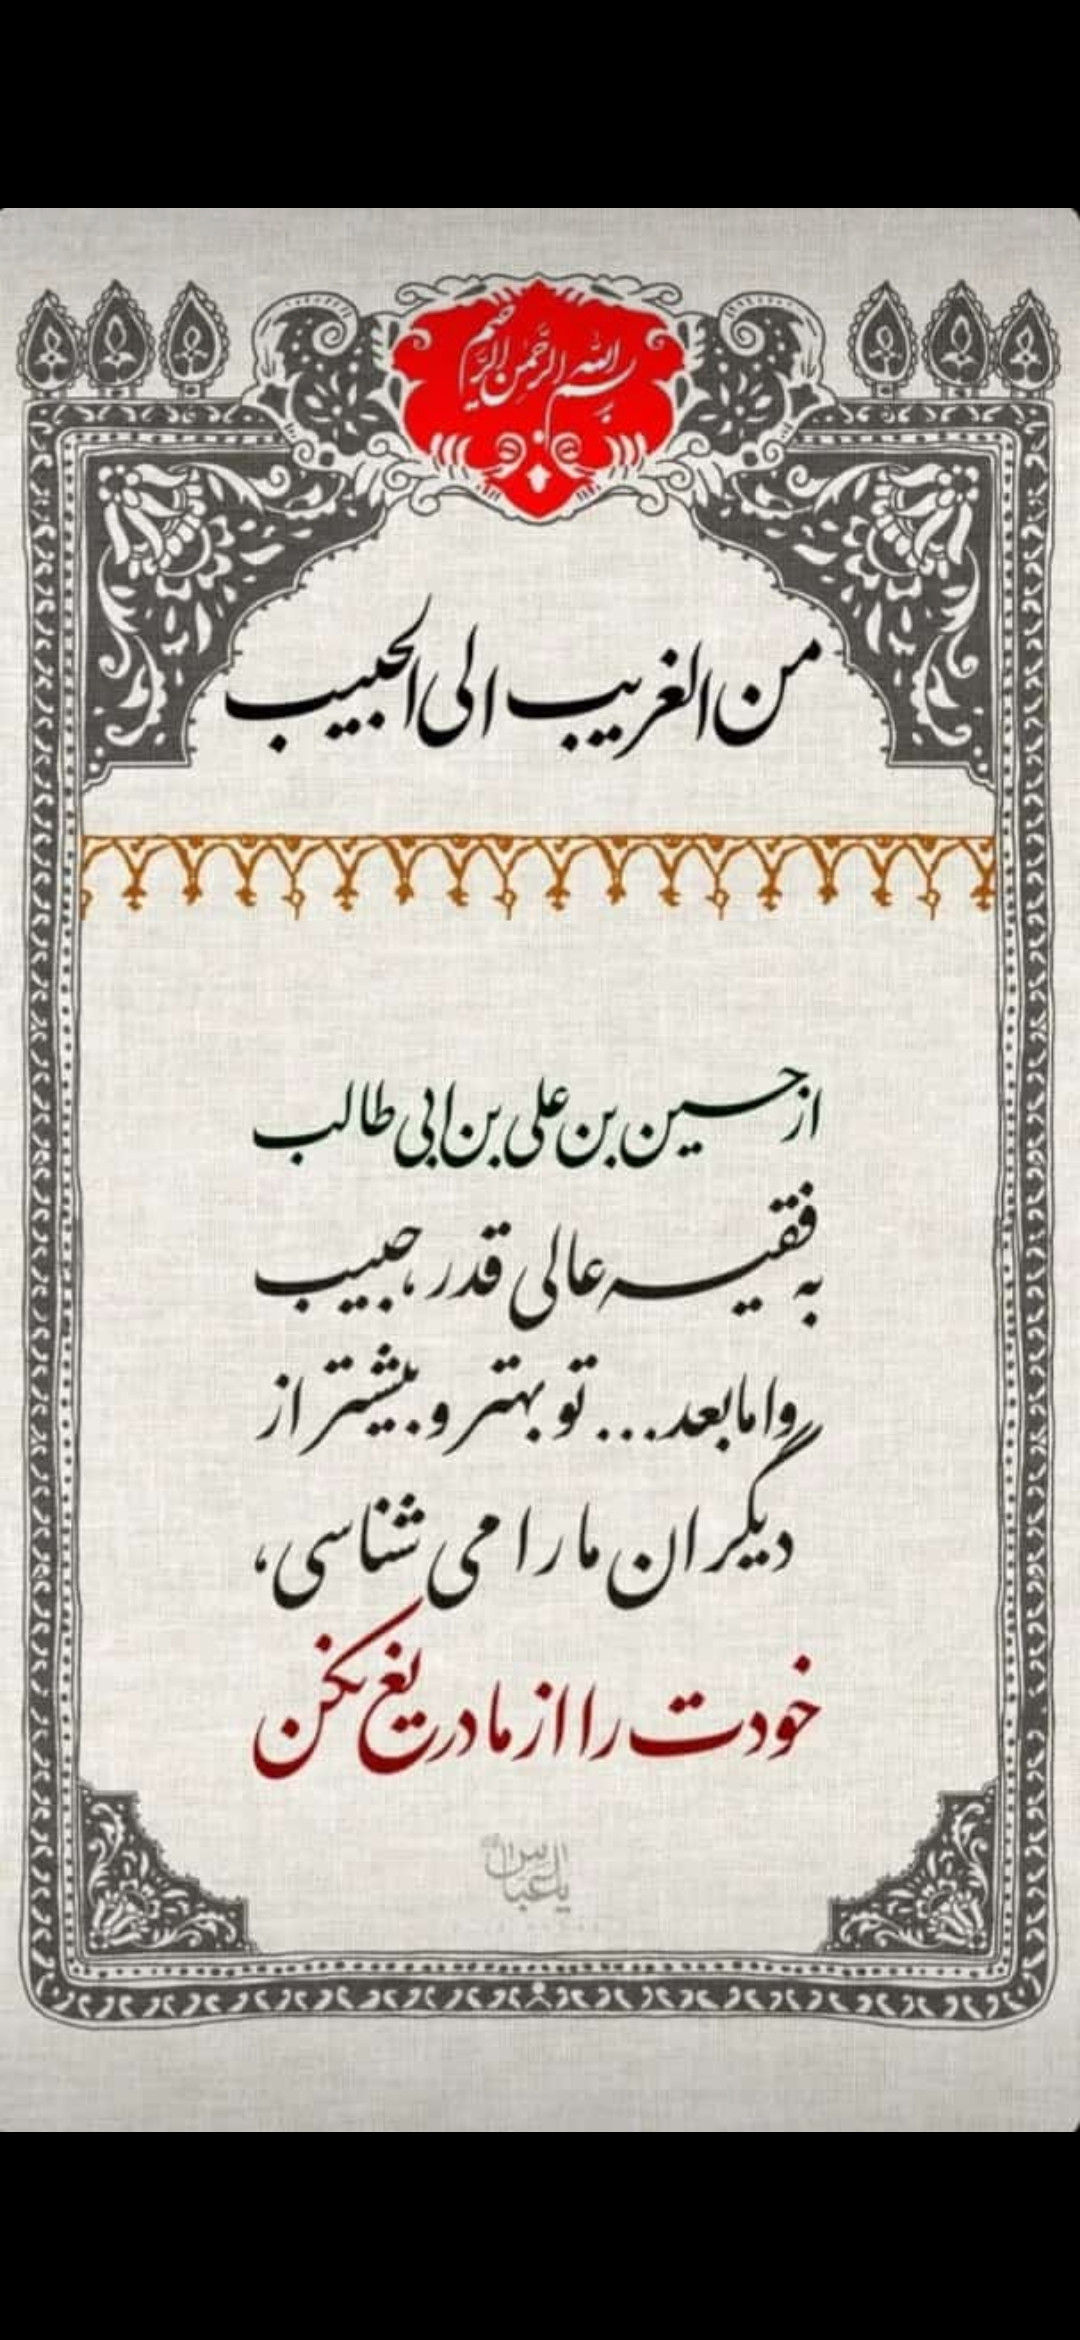 بسم الله الرحمن الرحیم
من الغریب الی الحبیب
از حسین بن علی بن ابی طالب
به فقیه عالی قدر، حبیب
و اما بعد... تو بهتر و بیشتر از
دیگران ما را می شناسی،
خودت را از ما دریغ نکن
یا عباس